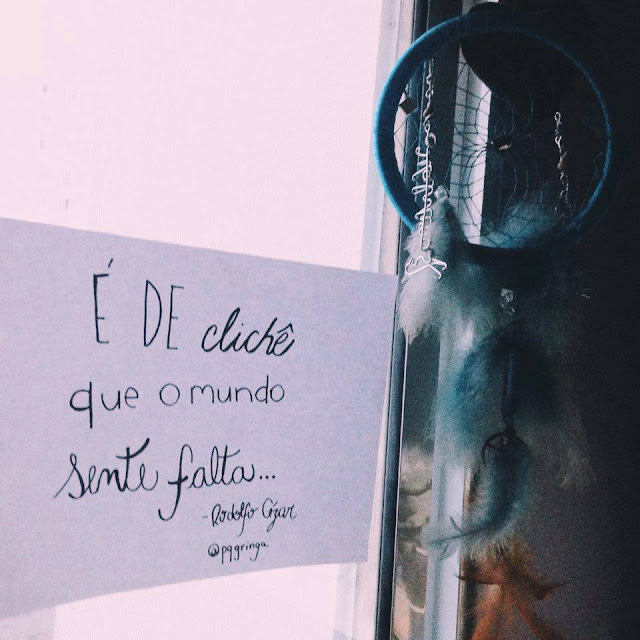 É DE clichê
que o mundo
sente falta...
- Rodolfo Czar
@pqgringa